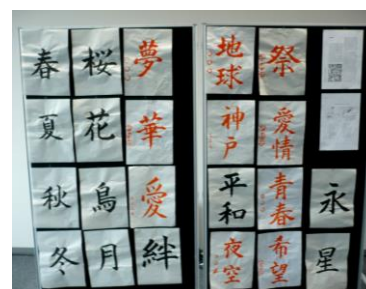 春 桜 夢
夏 花 華
秋 鳥 愛
冬 月 絆
地球 祭
神戸 愛情
平和 青春 永
夜空 希望 星